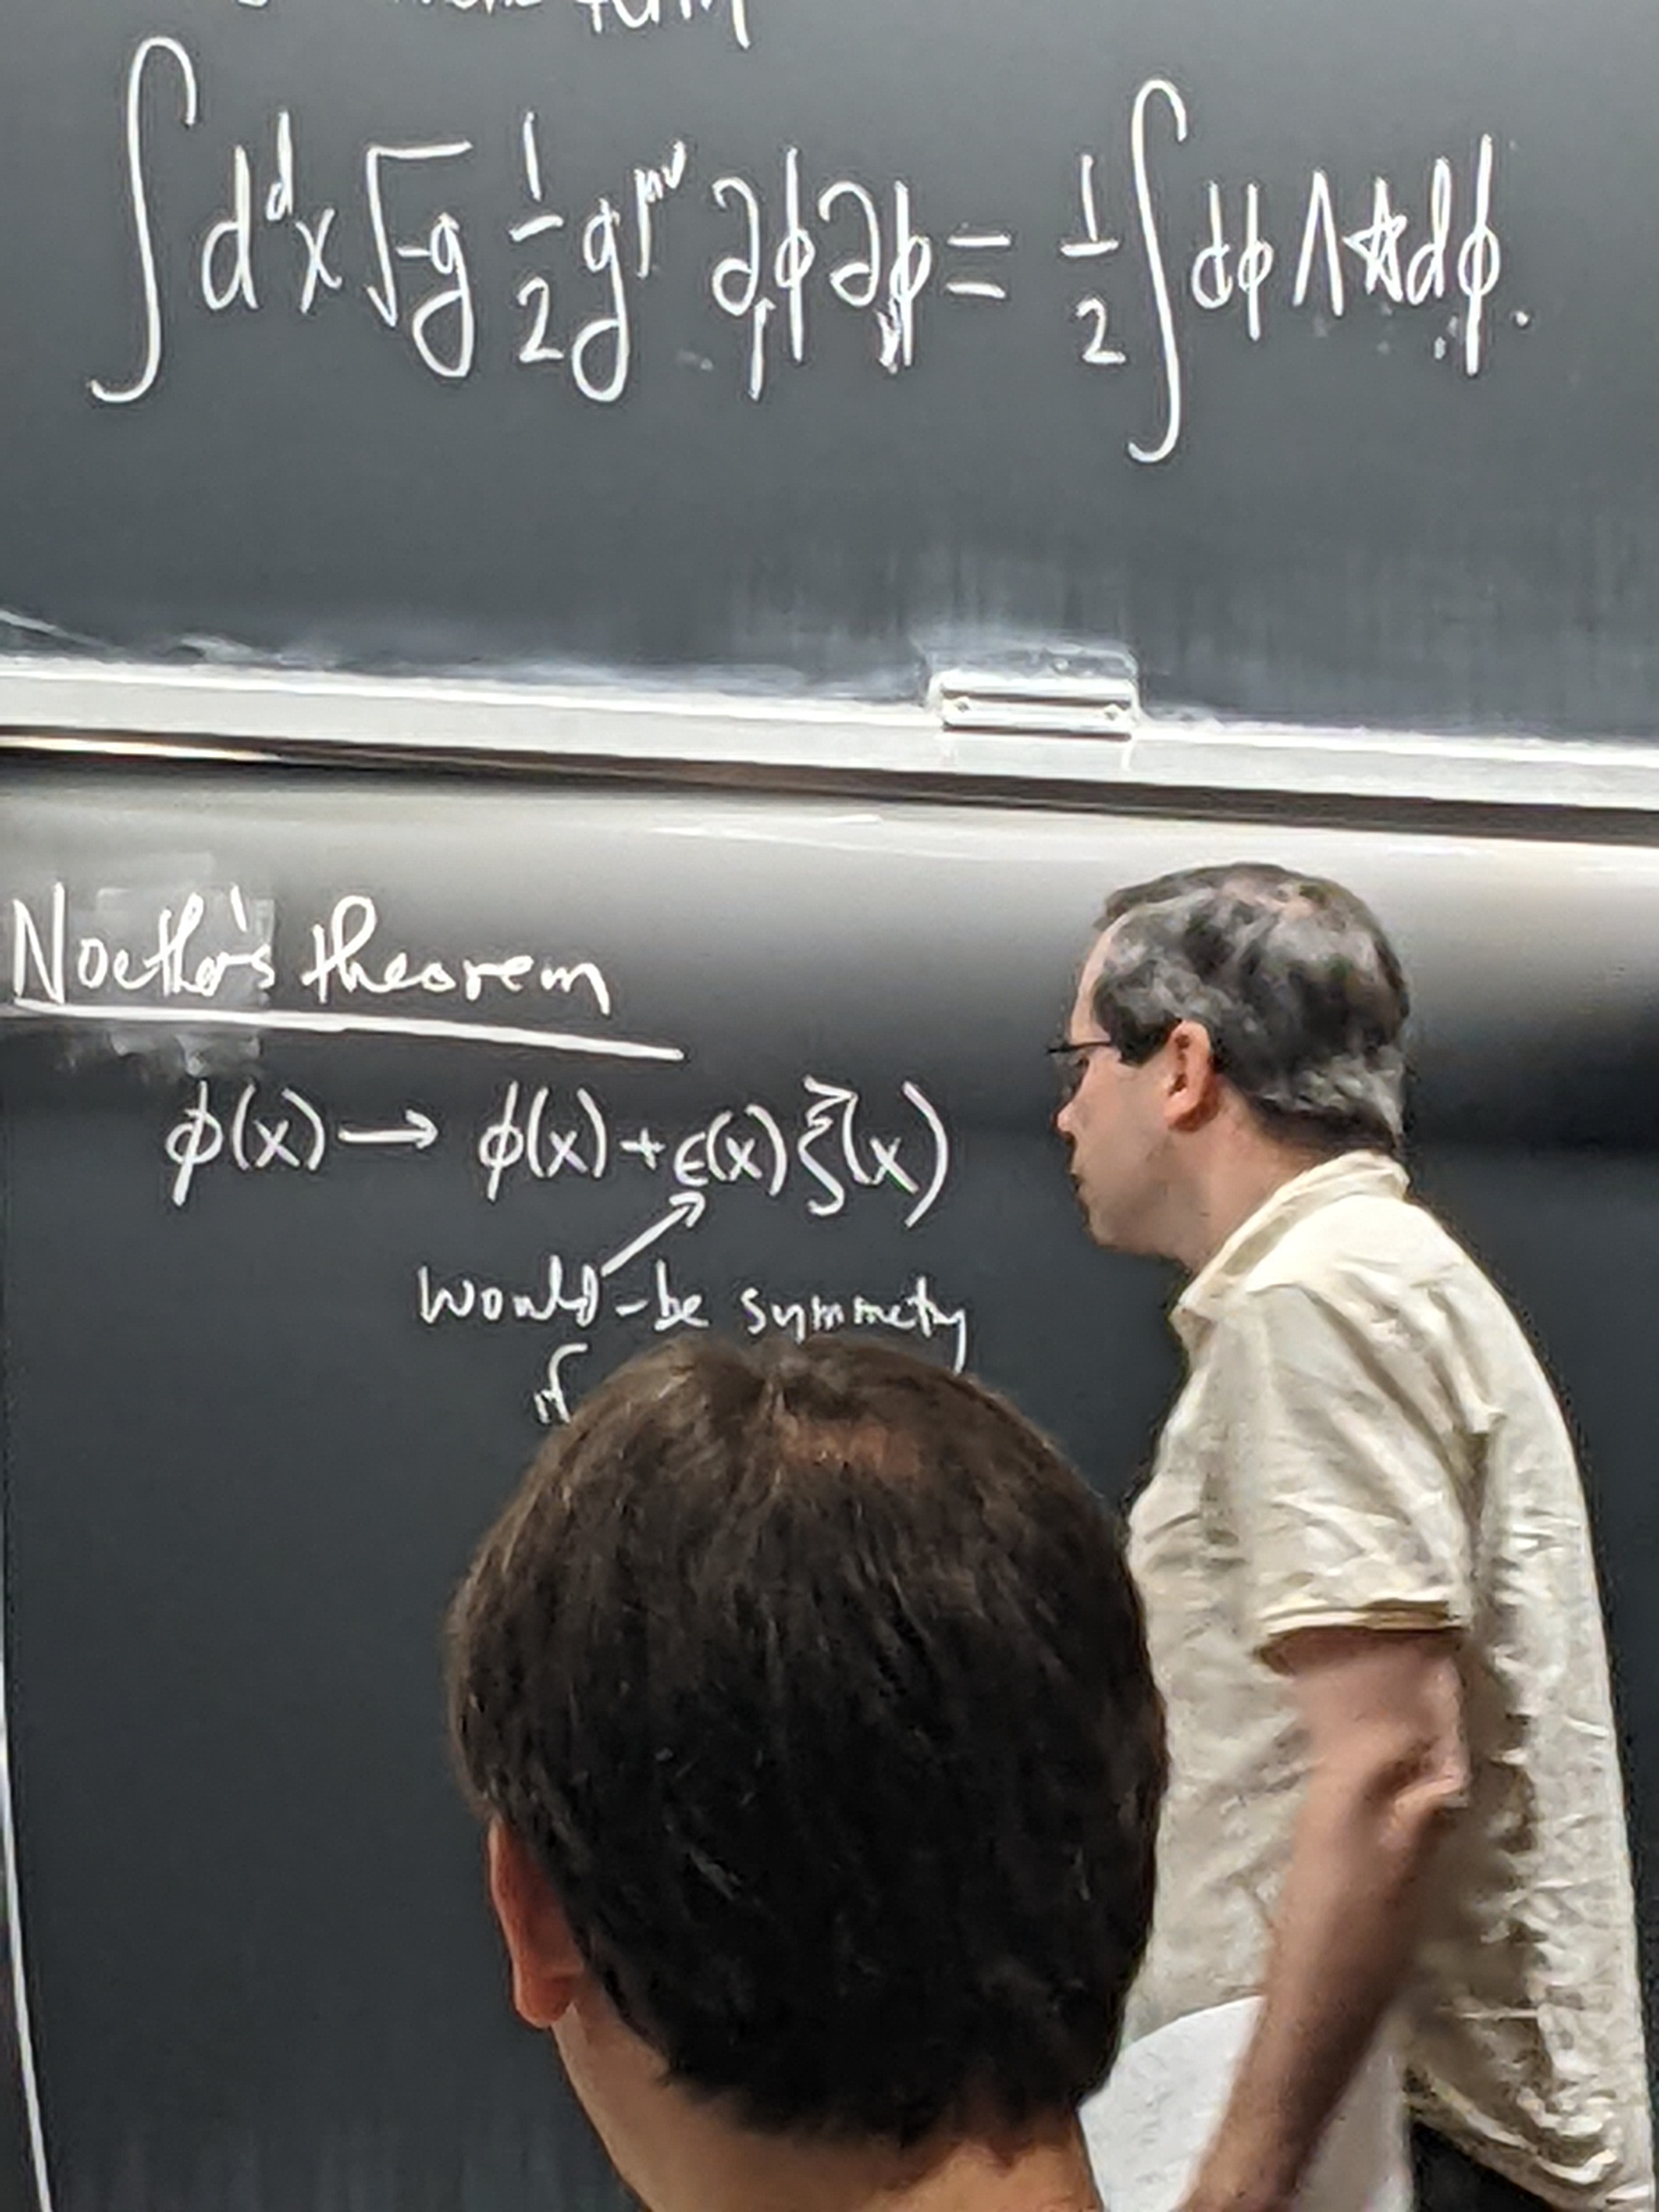 ∫ d^d x √-g 1/2 g^{μν} ∂_μ φ ∂_ν φ = 1/2 ∫ dφ ∧ ⋆dφ.
Noether's theorem
φ(x) → φ(x) + ε(x) ξ⃗(x)
would-be symmetry
if